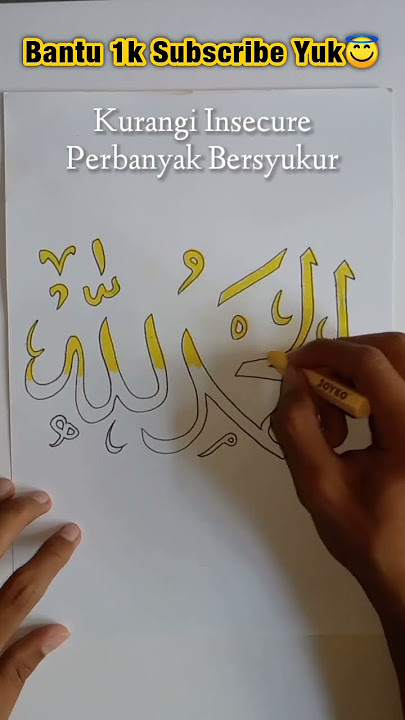 Bantu 1k Subscribe Yuk😇
Kurangi Insecure
Perbanyak Bersyukur
الحمد لله
JOYKO